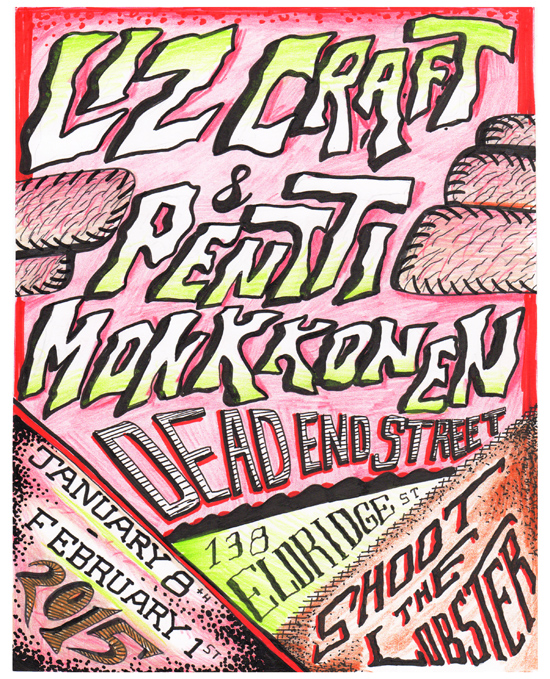 LIZ CRAFT
&
PENTTI
MONKKONEN
DEAD END STREET
JANUARY 8TH
FEBRUARY 1ST
2015
138
ELDRIDGE ST
SHOOT
THE
LOBSTER